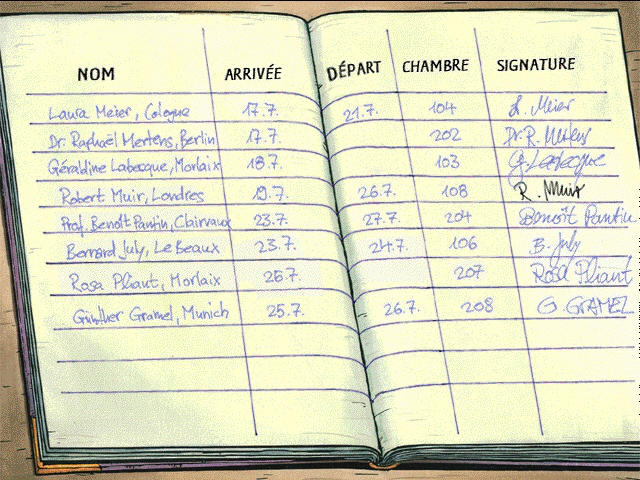 NOM ARRIVÉE DÉPART CHAMBRE SIGNATURE
Laura Meier, Cologne 17.7. 21.7. 104 L. Meier
Dr. Raphaël Mertens, Berlin 17.7. 202 Dr. R. Mertens
Géraldine Labecque, Morlaix 18.7. 103 G. Labecque
Robert Muir, Londres 19.7. 26.7. 108 R. Muir
Prof. Benoît Pantin, Clairvaux 23.7. 27.7. 204 Benoît Pantin
Bernard July, Le Beaux 23.7. 24.7. 106 B. July
Rosa Pliant, Morlaix 207 Rosa Pliant
Günther Gramel, Munich 25.7. 26.7. 208 G. GRAMEL